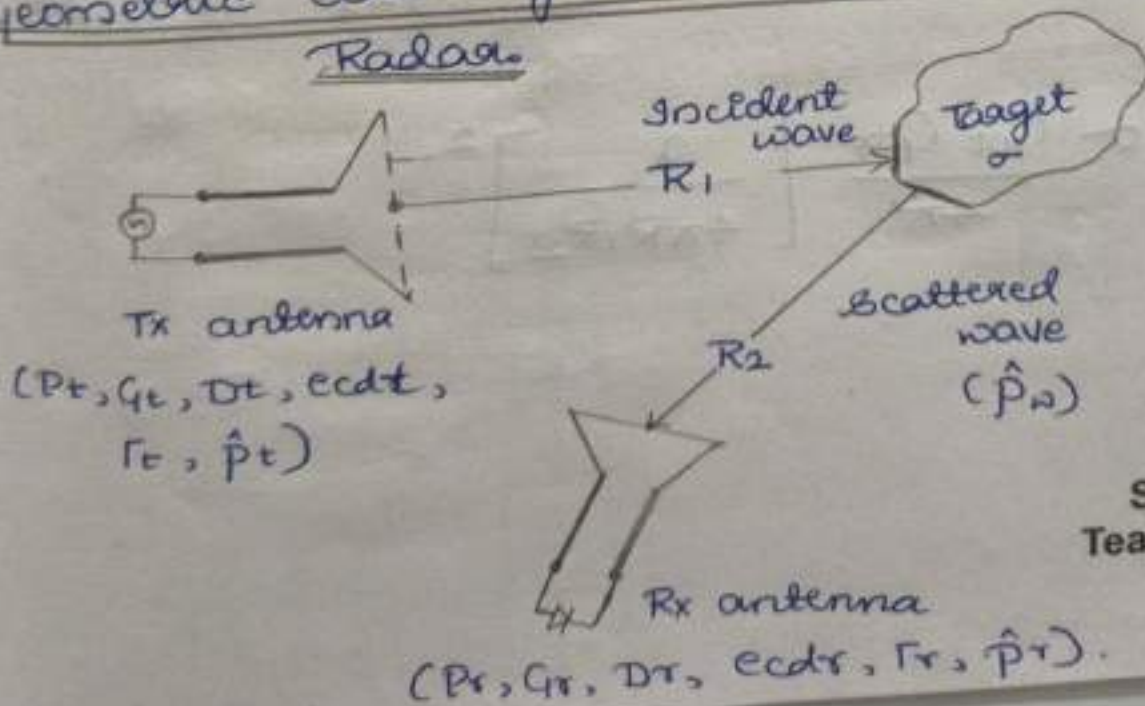 Radar.
Incident
wave
Taaget
σ
R1
Tx antenna
(Pt, Gt, Dt, ecdt,
Γt, p̂t)
R2
Scattered
wave
(p̂w)
Rx antenna
(Pr, Gr, Dr, ecdr, Γr, p̂r).